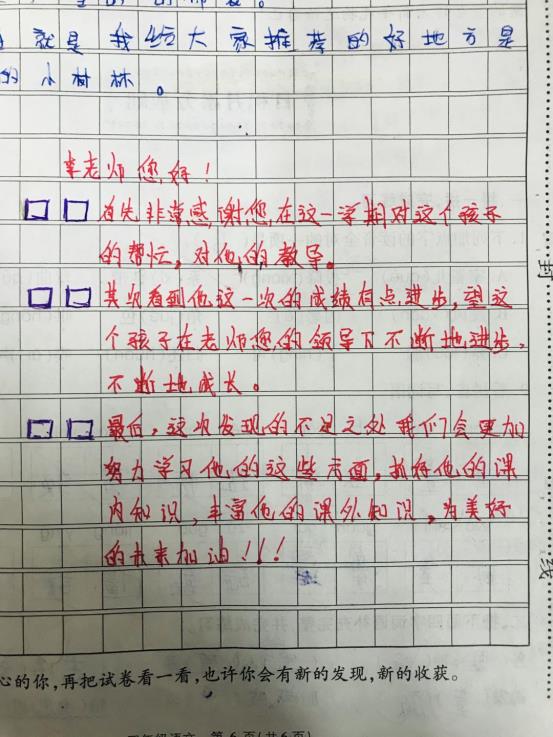 就是我给大家推荐的好地方是
的小树林。
李老师您好！
首先非常感谢您在这一学期对这个孩子
的帮忙，对他的教导。
其次看到他这一次的成绩有点进步，望这
个孩子在老师您的领导下不断地进步，
不断地成长。
最后，这次发现的不足之处我们会更加
努力学习他的这些方面，抓好他的课
内知识，丰富他的课外知识，为美好
的未来加油！！！
封
线
心的你，再把试卷看一看，也许你会有新的发现，新的收获。
年级语文 第6页（共6页）